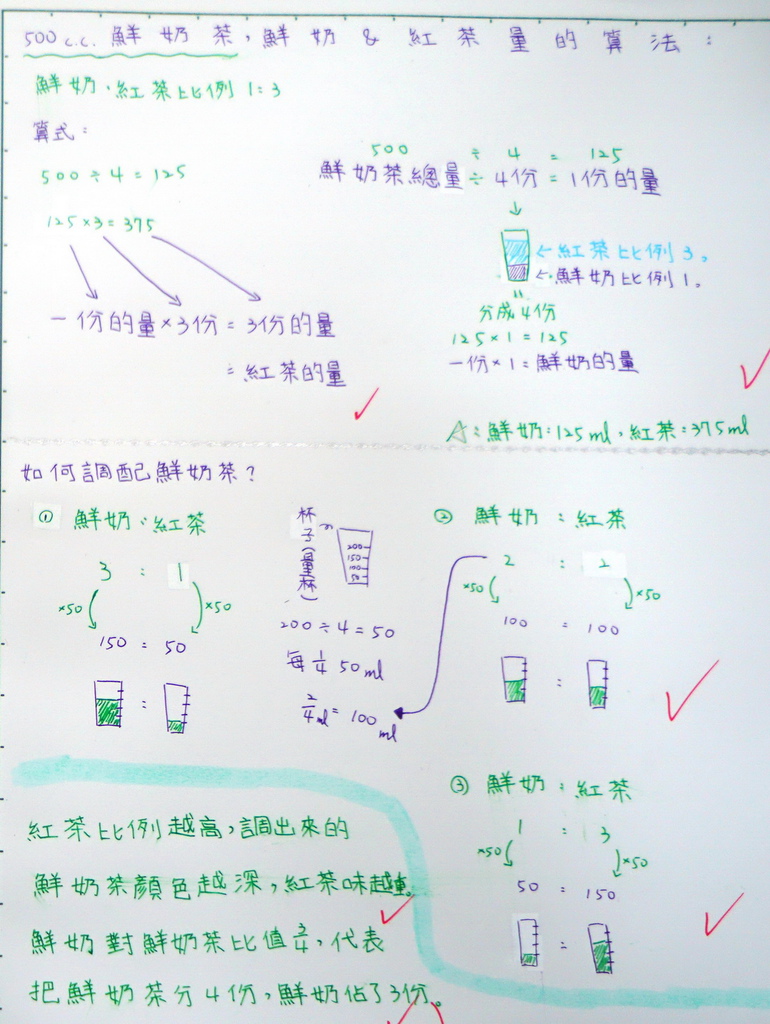 500 c.c. 鮮奶茶，鮮奶 & 紅茶量的算法：
鮮奶、紅茶比例 1:3
算式：
500 ÷ 4 = 125
125 × 3 = 375
一份的量 × 3份 = 3份的量
= 紅茶的量
500 ÷ 4 = 125
鮮奶茶總量 ÷ 4份 = 1份的量
← 紅茶比例 3。
← 鮮奶比例 1。
分成4份
125 × 1 = 125
一份 × 1 = 鮮奶的量
A：鮮奶：125ml，紅茶：375ml
如何調配鮮奶茶？
① 鮮奶：紅茶
3 : 1
×50 ×50
150 : 50
:
杯子(量杯)
200
150
100
50
200 ÷ 4 = 50
每 1/4 50 ml
2/4 ml = 100 ml
② 鮮奶：紅茶
2 : 2
×50 ×50
100 = 100
:
③ 鮮奶：紅茶
1 : 3
×50 ×50
50 = 150
=
紅茶比例越高，調出來的
鮮奶茶顏色越深，紅茶味越重。
鮮奶對鮮奶茶比值 3/4，代表
把鮮奶茶分4份，鮮奶佔了3份。